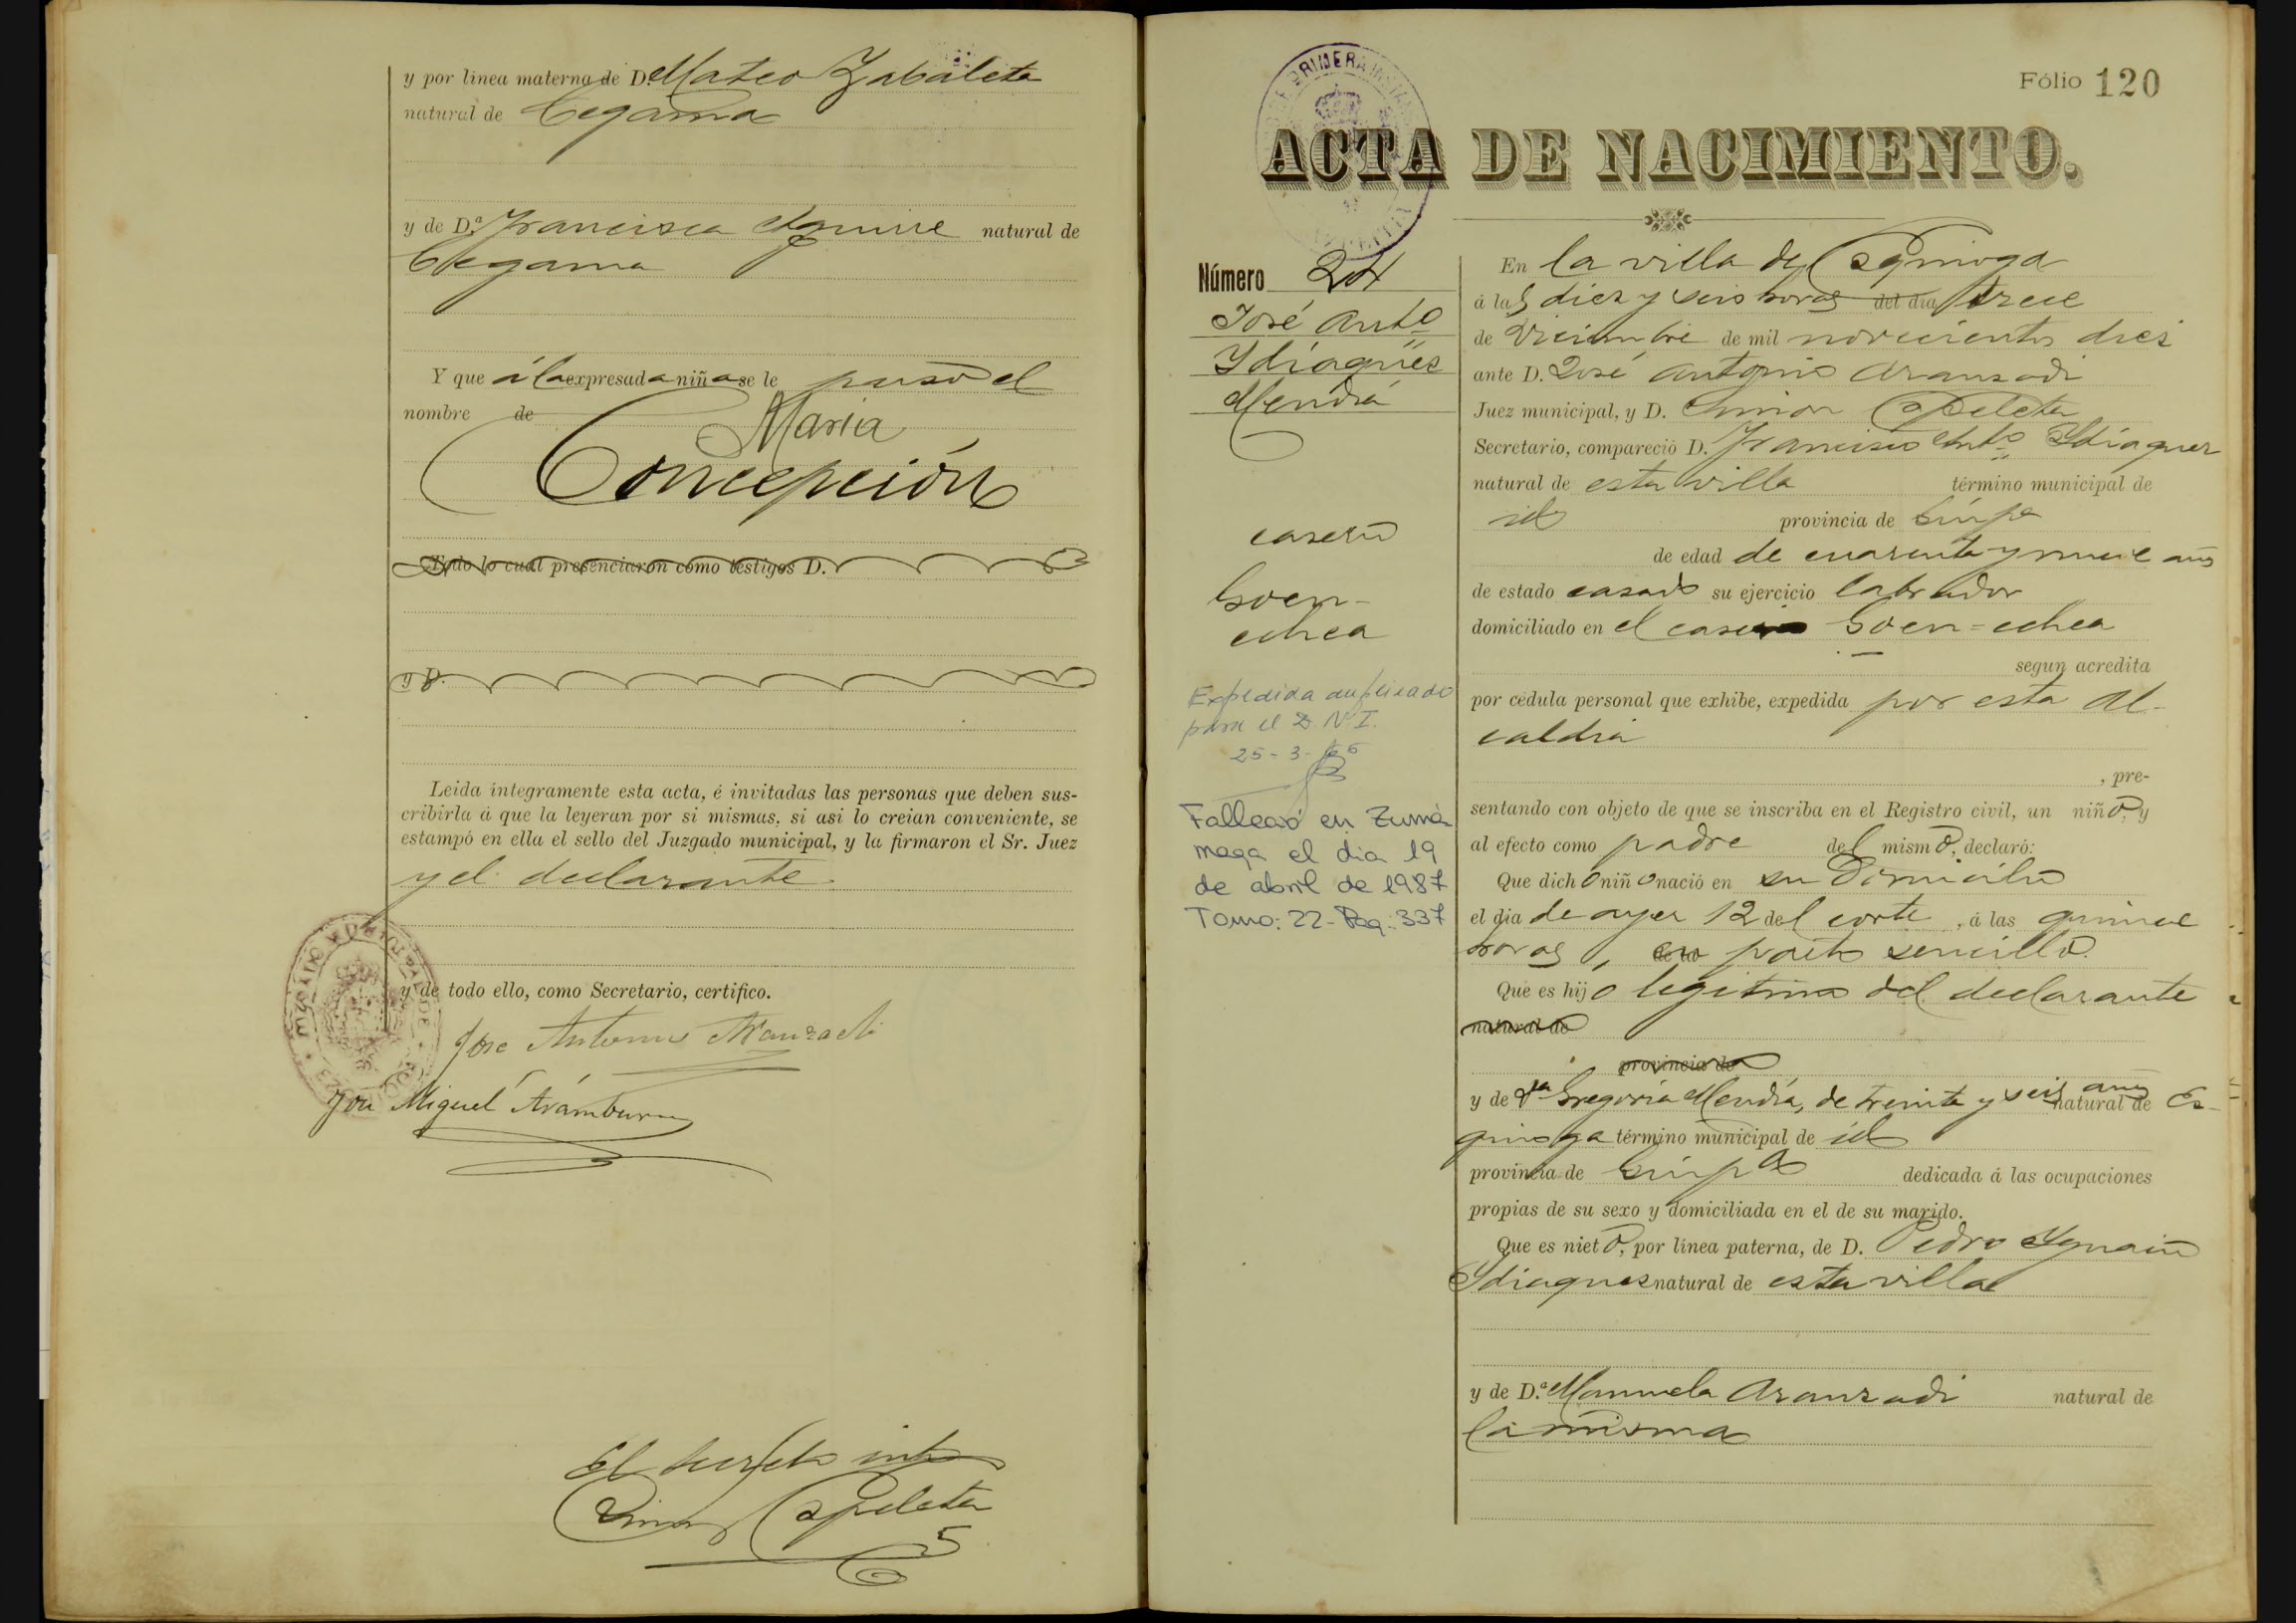 y por línea materna de D. Mateo Zabaleta
natural de Cegama
y de D.ª Francisca Aguirre natural de
Cegama
Y que á la expresada niña se le puso el
nombre de María
Concepción
Todo lo cual presenciaron como testigos D.
y D.
Leida íntegramente esta acta, é invitadas las personas que deben sus-
cribirla á que la leyeran por si mismas, si asi lo creian conveniente, se
estampó en ella el sello del Juzgado municipal, y la firmaron el Sr. Juez
y el declarante
y de todo ello, como Secretario, certifico.
Jose Antonio Aranzadi
José Miguel Arámburu
El Secreto into
Simon Apeleta
Fólio 120
ACTA DE NACIMIENTO.
Número 24
José Antº
Ydiaqües
Mendía
caserío
Goen-
echea
Expedida duplicado
para el D.N.I.
25-3-66
Falleció en Zumá
rraga el dia 19
de abril de 1987
Tomo: 22- Pag.: 337
En la villa de Ezquioga
á las diez y seis horas del día trece
de Diciembre de mil novecientos diez
ante D. José Antonio Aranzadi
Juez municipal, y D. Simon Apeleta
Secretario, compareció D. Francisco Antº Ydiaquez
natural de esta villa término municipal de
id provincia de Guipª
de edad de cuarenta y nueve años
de estado casado su ejercicio labrador
domiciliado en el caserio Goen=echea
segun acredita
por cédula personal que exhibe, expedida por esta Al-
caldía
, pre-
sentando con objeto de que se inscriba en el Registro civil, un niño, y
al efecto como padre del mismo, declaró:
Que dicho niño nació en su Domicilio
el dia de ayer 12 del corte , á las quince
horas, en parto sencillo.
Que es hijo legítimo del declarante
natural de
provincia de
y de Dª Gregoria Mendía, de treinta y seis años natural de Ez-
quioga término municipal de id
provincia de Guipª dedicada á las ocupaciones
propias de su sexo y domiciliada en el de su marido.
Que es nieto, por línea paterna, de D. Pedro Ygnacio
Ydiaques natural de esta villa
y de D.ª Manuela Aranzadi natural de
la misma